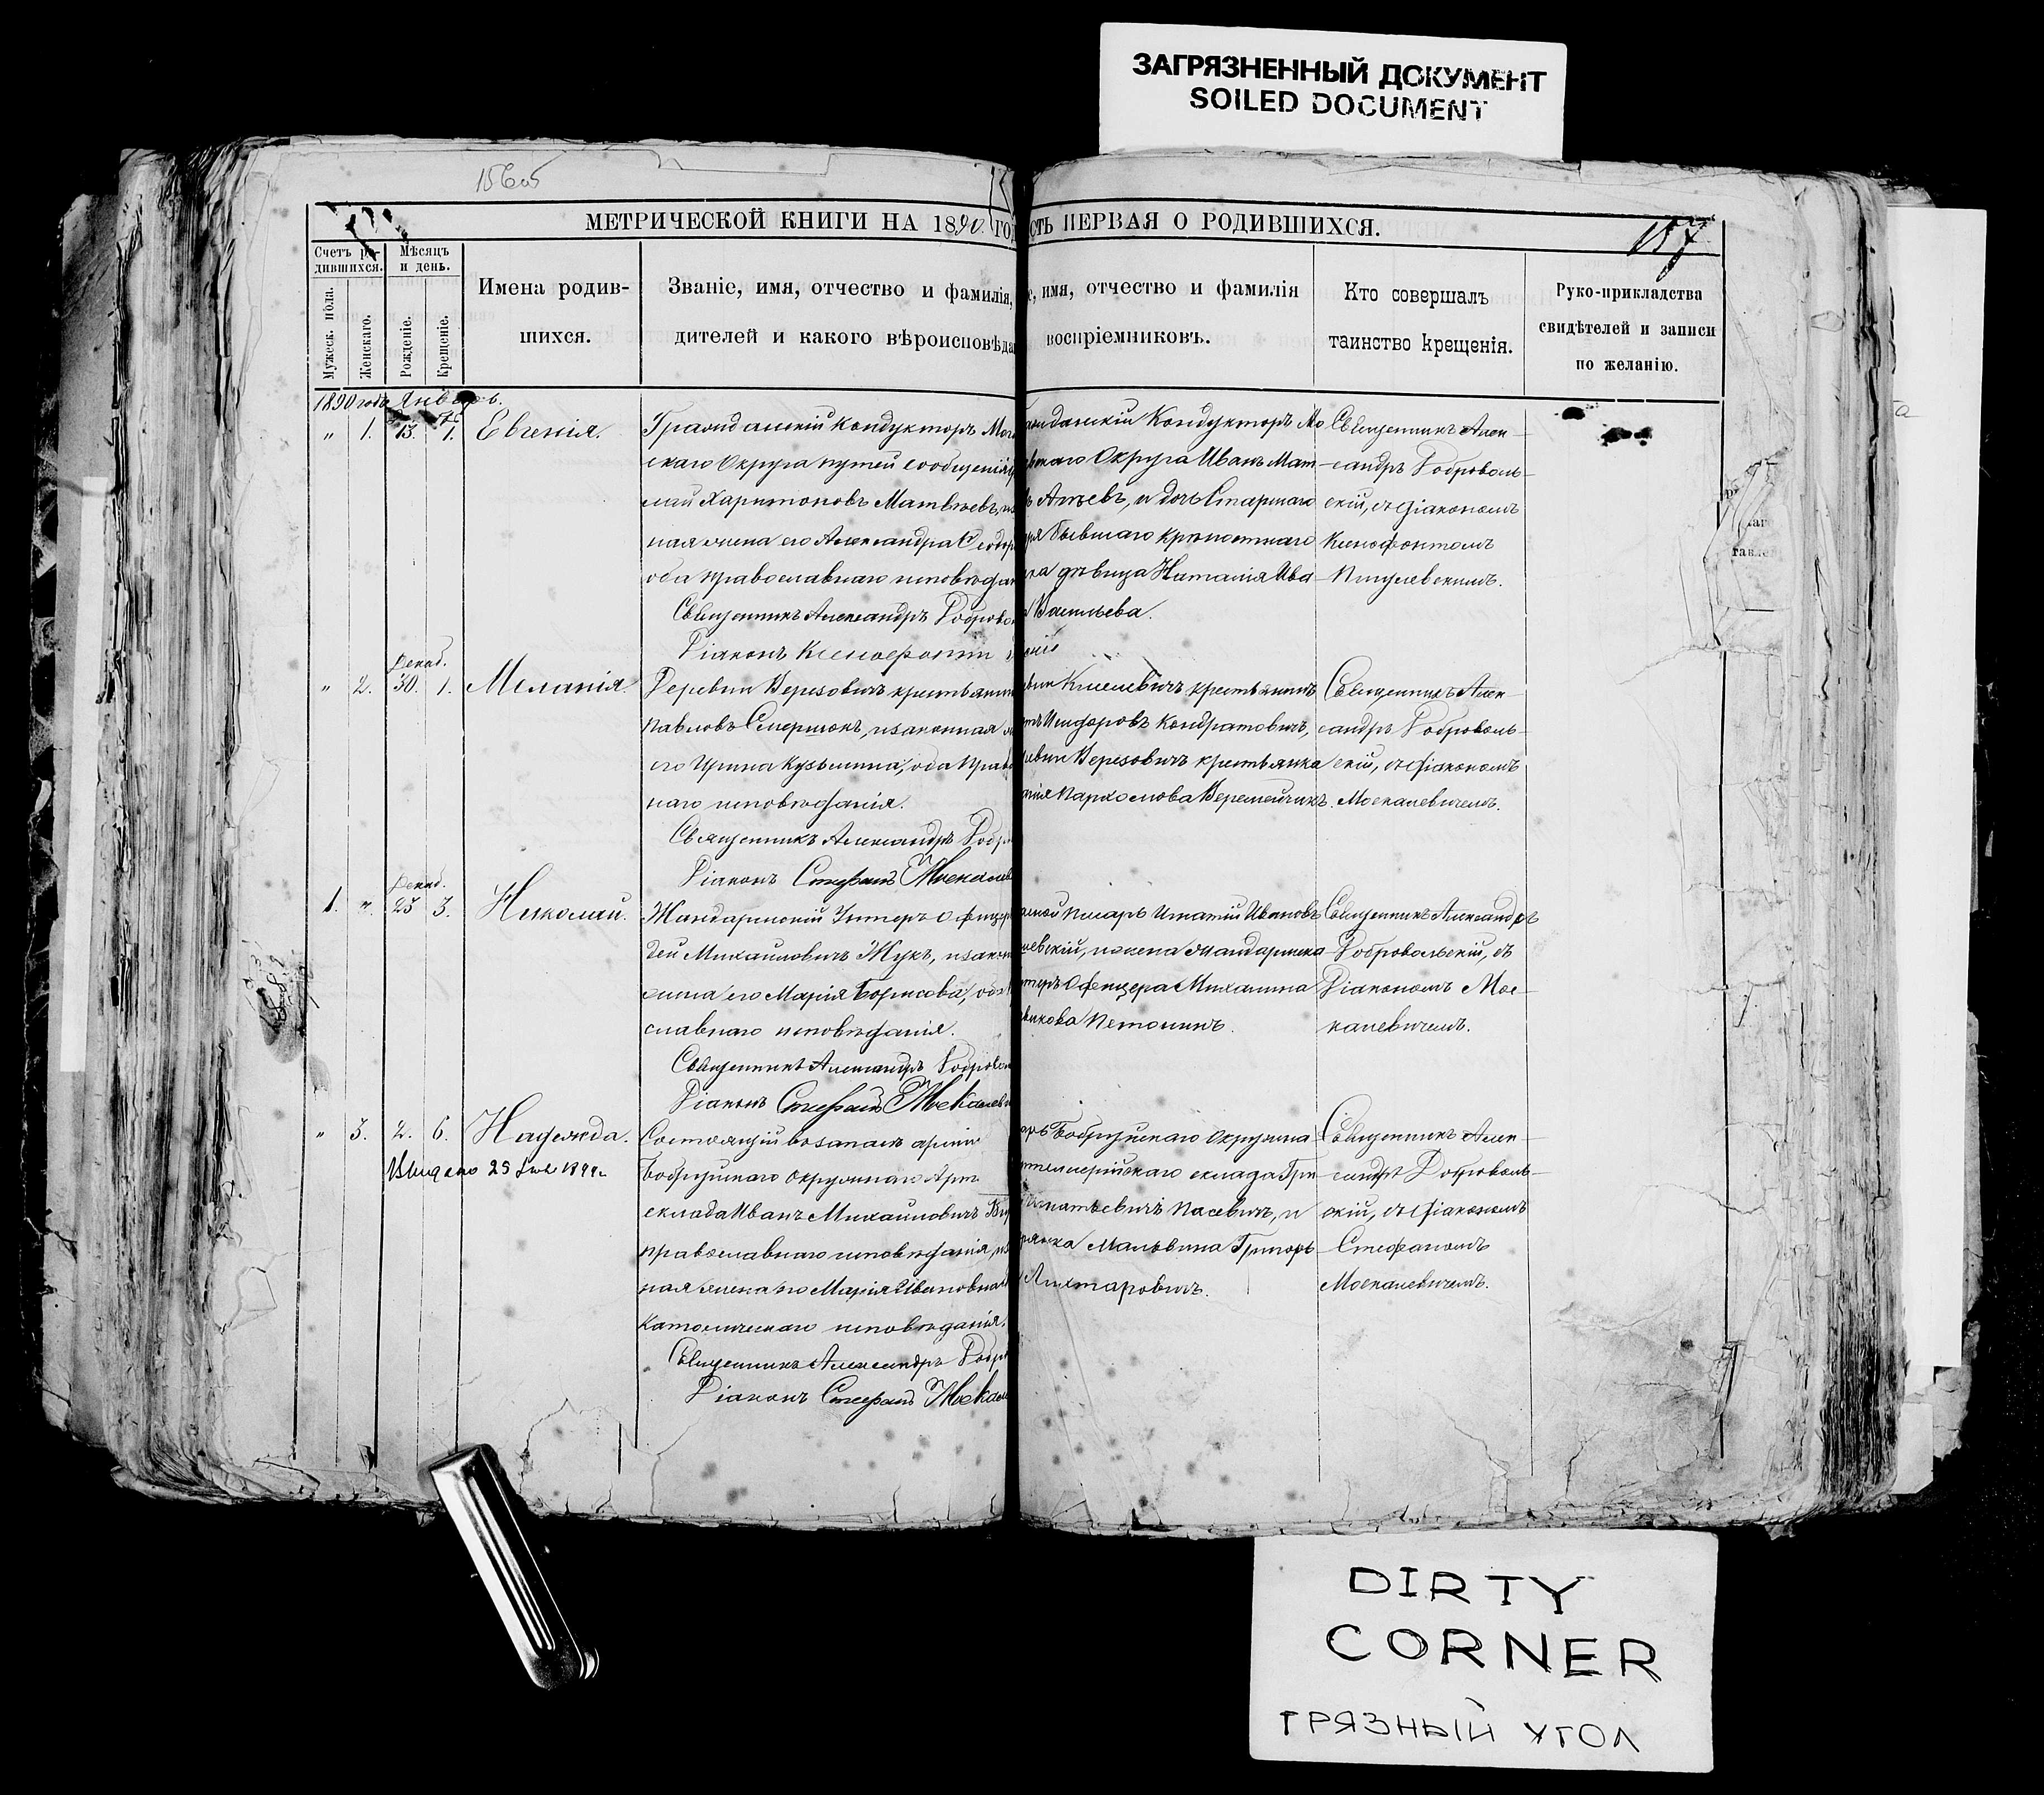 ЗАГРЯЗНЕННЫЙ ДОКУМЕНТ
SOILED DOCUMENT
156об
МЕТРИЧЕСКОЙ КНИГИ НА 1890 ГОД
СТЬ ПЕРВАЯ О РОДИВШИХСЯ.
157
Счетъ ро-
дившихся.
Мѣсяцъ
и день.
Мужеск. пола.
Женскаго.
Рожденіе.
Крещеніе.
Имена родив-
шихся.
Званіе, имя, отчество и фамилія,
дителей и какого вѣроисповѣда
е, имя, отчество и фамилія
воспріемниковъ.
Кто совершалъ
таинство крещенія.
Руко-прикладства
свидѣтелей и записи
по желанію.
1890 годъ Январь.
" 1. 13. 1. Евгенія.
Гражданскій Кондукторъ Мог
скаго Округа путей сообщенія
лай Харитоновъ Матвѣевъ,
ная жена его Александра
оба православнаго исповѣдан
Священникъ Александръ Доброво
Діаконъ Ксенофонтъ
жданскій Кондукторъ Мо
вскаго Округа Иванъ Мат
Аѣевъ, и дочь Старшаго
ря бывшаго крѣпостнаго
дѣвица Наталія Ива
Васильева.
Священникъ Алек-
сандръ Доброволь-
скій, съ діакономъ
Ксенофонтомъ
Декаб.
" 2. 30. 1. Меланія.
Деревни Березовичъ крестьянин
Павловъ Смершокъ, и законная
его Ирина Кузьмина, оба Право
наго исповѣданія.
Священникъ Александръ Добр
Діаконъ Стефанъ Москалев
вни Киселевичъ крестьянинъ
Исидоровъ Кондратовичъ,
евни Березовичъ крестьянка
Пархомова Веремейчикъ.
Священникъ Алек-
сандръ Доброволь-
скій, съ діакономъ
Москалевичемъ.
Декаб.
1. " 25 3. Николай.
Жандармскій Унтеръ-офицер
дей Михайловичъ Жукъ, и закон
жена его Марія Борисова, оба
славнаго исповѣданія.
Священникъ Александръ Добровол
Діаконъ Стефанъ Москалеви
Писарь Игнатій Ивановъ
евскій, и жена жандармска
теръ Офицера Михалина
Священникъ Александръ
Добровольскій, съ
Діакономъ Мос-
калевичемъ.
" 3. 2. 6. Надежда.
Состоящій въ запасѣ арміи
Бобруйскаго окружнаго Арт
склада Иванъ Михайловичъ
православнаго исповѣданія,
ная жена его Марія Ивановна
Католическаго исповѣданія.
Священникъ Александръ Добр
Діаконъ Стефанъ Москал
арь Бобруйскаго окружна
тиллерійскаго склада Гри
Игнатьевичъ Пасевичъ, и
Мальвина Григорь
Лихтаровичъ.
Священникъ Алек-
сандръ Доброволь-
скій, съ діакономъ
Стефаномъ
Москалевичемъ.
DIRTY
CORNER
ГРЯЗНЫЙ УГОЛ